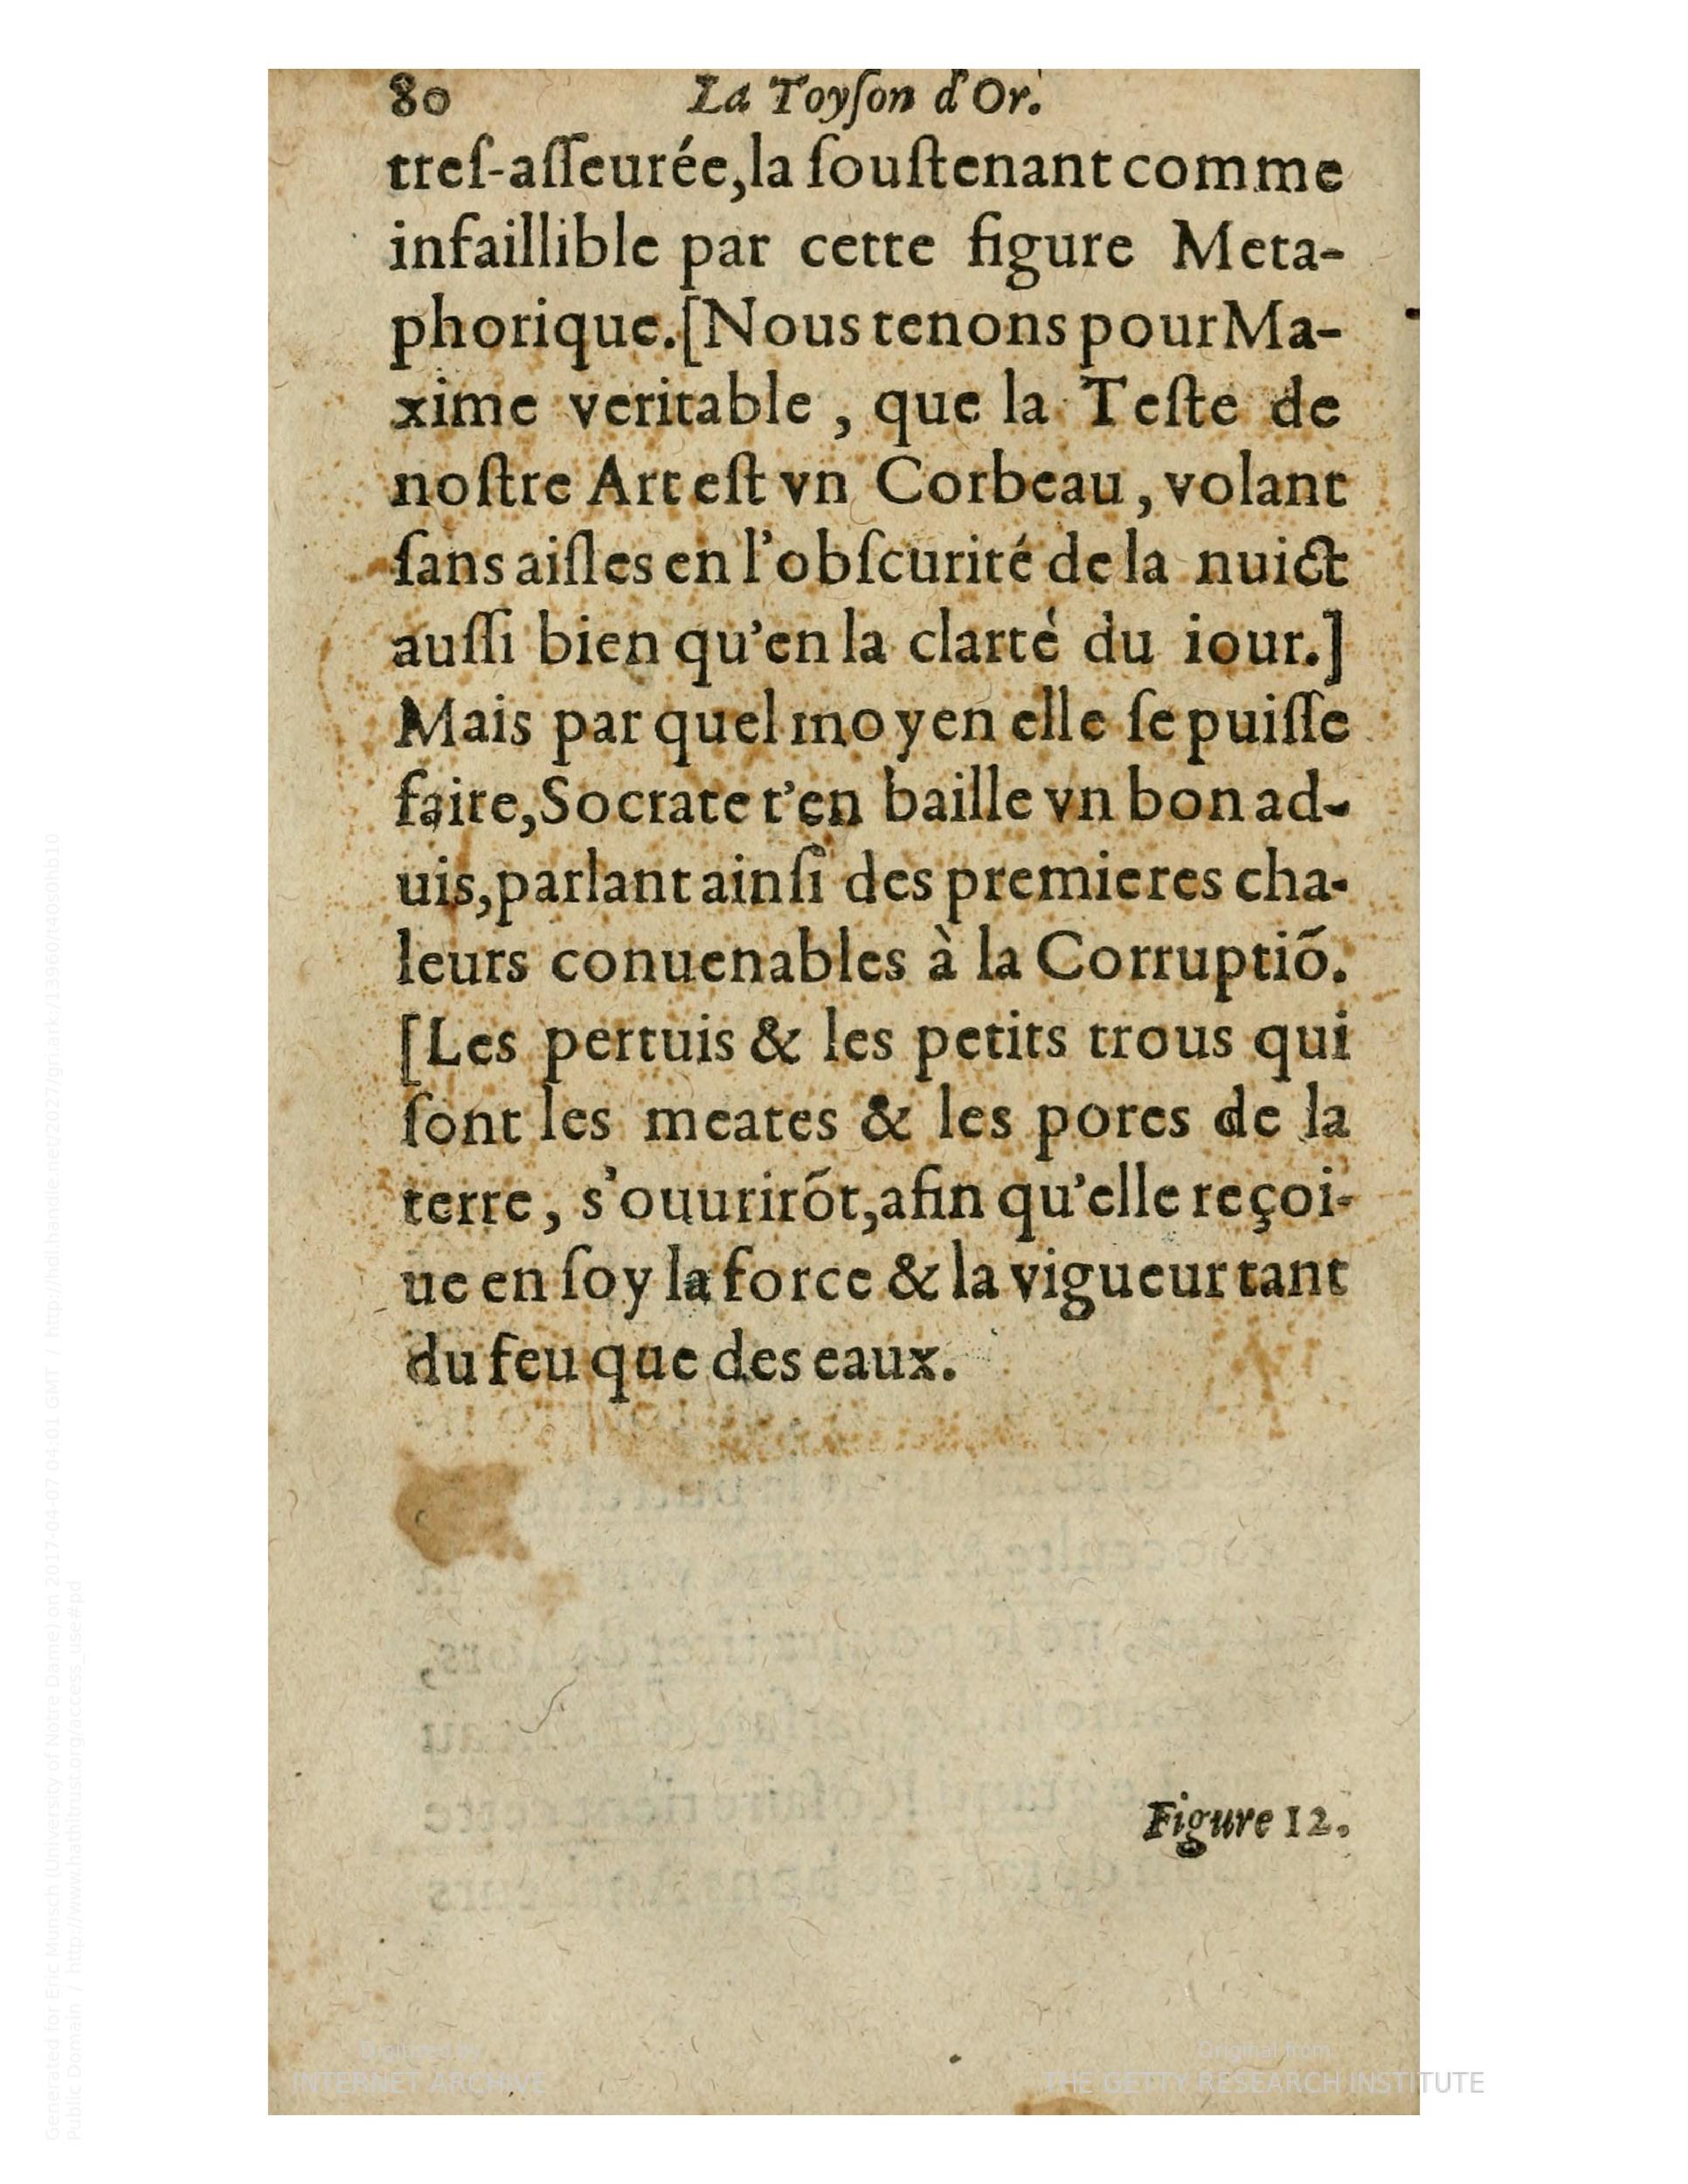 80 La Toyſon d'Or.
treſ-aſſeurée,la ſouſtenant comme
infaillible par cette figure Meta-
phorique.[Nous tenons pour Ma-
xime veritable , que la Teſte de
noſtre Art eſt vn Corbeau, volant
ſans aiſles en l'obſcurité de la nuict
auſſi bien qu'en la clarté du iour.]
Mais par quel moyen elle ſe puiſſe
faire,Socrate t'en baille vn bon ad-
uis,parlant ainſi des premieres cha-
leurs conuenables à la Corruptiõ.
[Les pertuis & les petits trous qui
ſont les meates & les pores de la
terre, s'ouurirõt,afin qu'elle reçoi-
ue en ſoy la force & la vigueur tant
du feu que des eaux.
Figure 12.
Generated for Eric Munsch (University of Notre Dame) on 2017-04-07 04:01 GMT / http://hdl.handle.net/2027/gri.ark:/13960/t40s0hb10
Public Domain / http://www.hathitrust.org/access_use#pd
Digitized by
INTERNET ARCHIVE
Original from
THE GETTY RESEARCH INSTITUTE